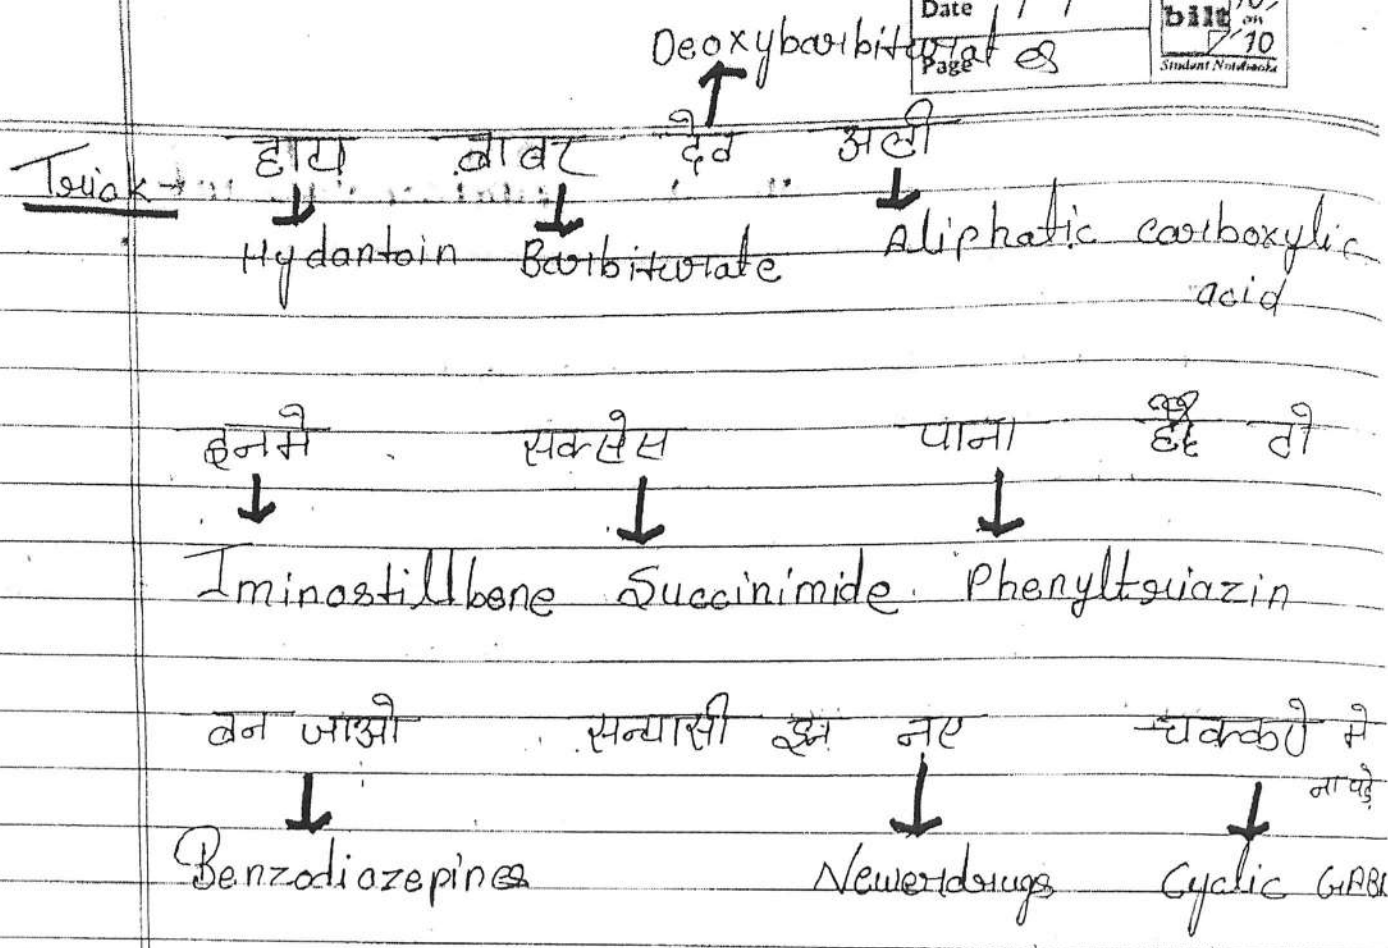 Date / /
bilt
Deoxybarbiturates
Page
Student Notebooks
Trick → हाय बाबर देव अली
Hydantoin Barbiturate Aliphatic carboxylic
acid
इनमे सक्सेस पाना है तो
Iminostillbene Succinimide. Phenyltriazin
बन जाओ सन्यासी इन नए चक्करो मे
ना पड़े
Benzodiazepines Newerdrugs Cyclic GABA